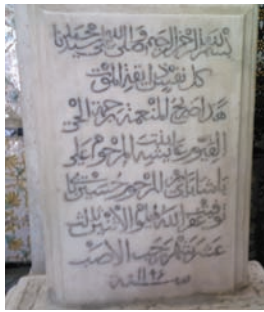 بسم الله الرحمن الرحيم وصلى الله على سيدنا
كل نفس ذائقة الموت
هذا ضريح المنعمة حرم الحي
القيوم عائشة بنت المرحوم علي
باشا باي بن المرحوم حسين باي
توفيت الله يوم الاثنين ثالث
عشر شهر رجب الأصب
سنة ١١٩٦